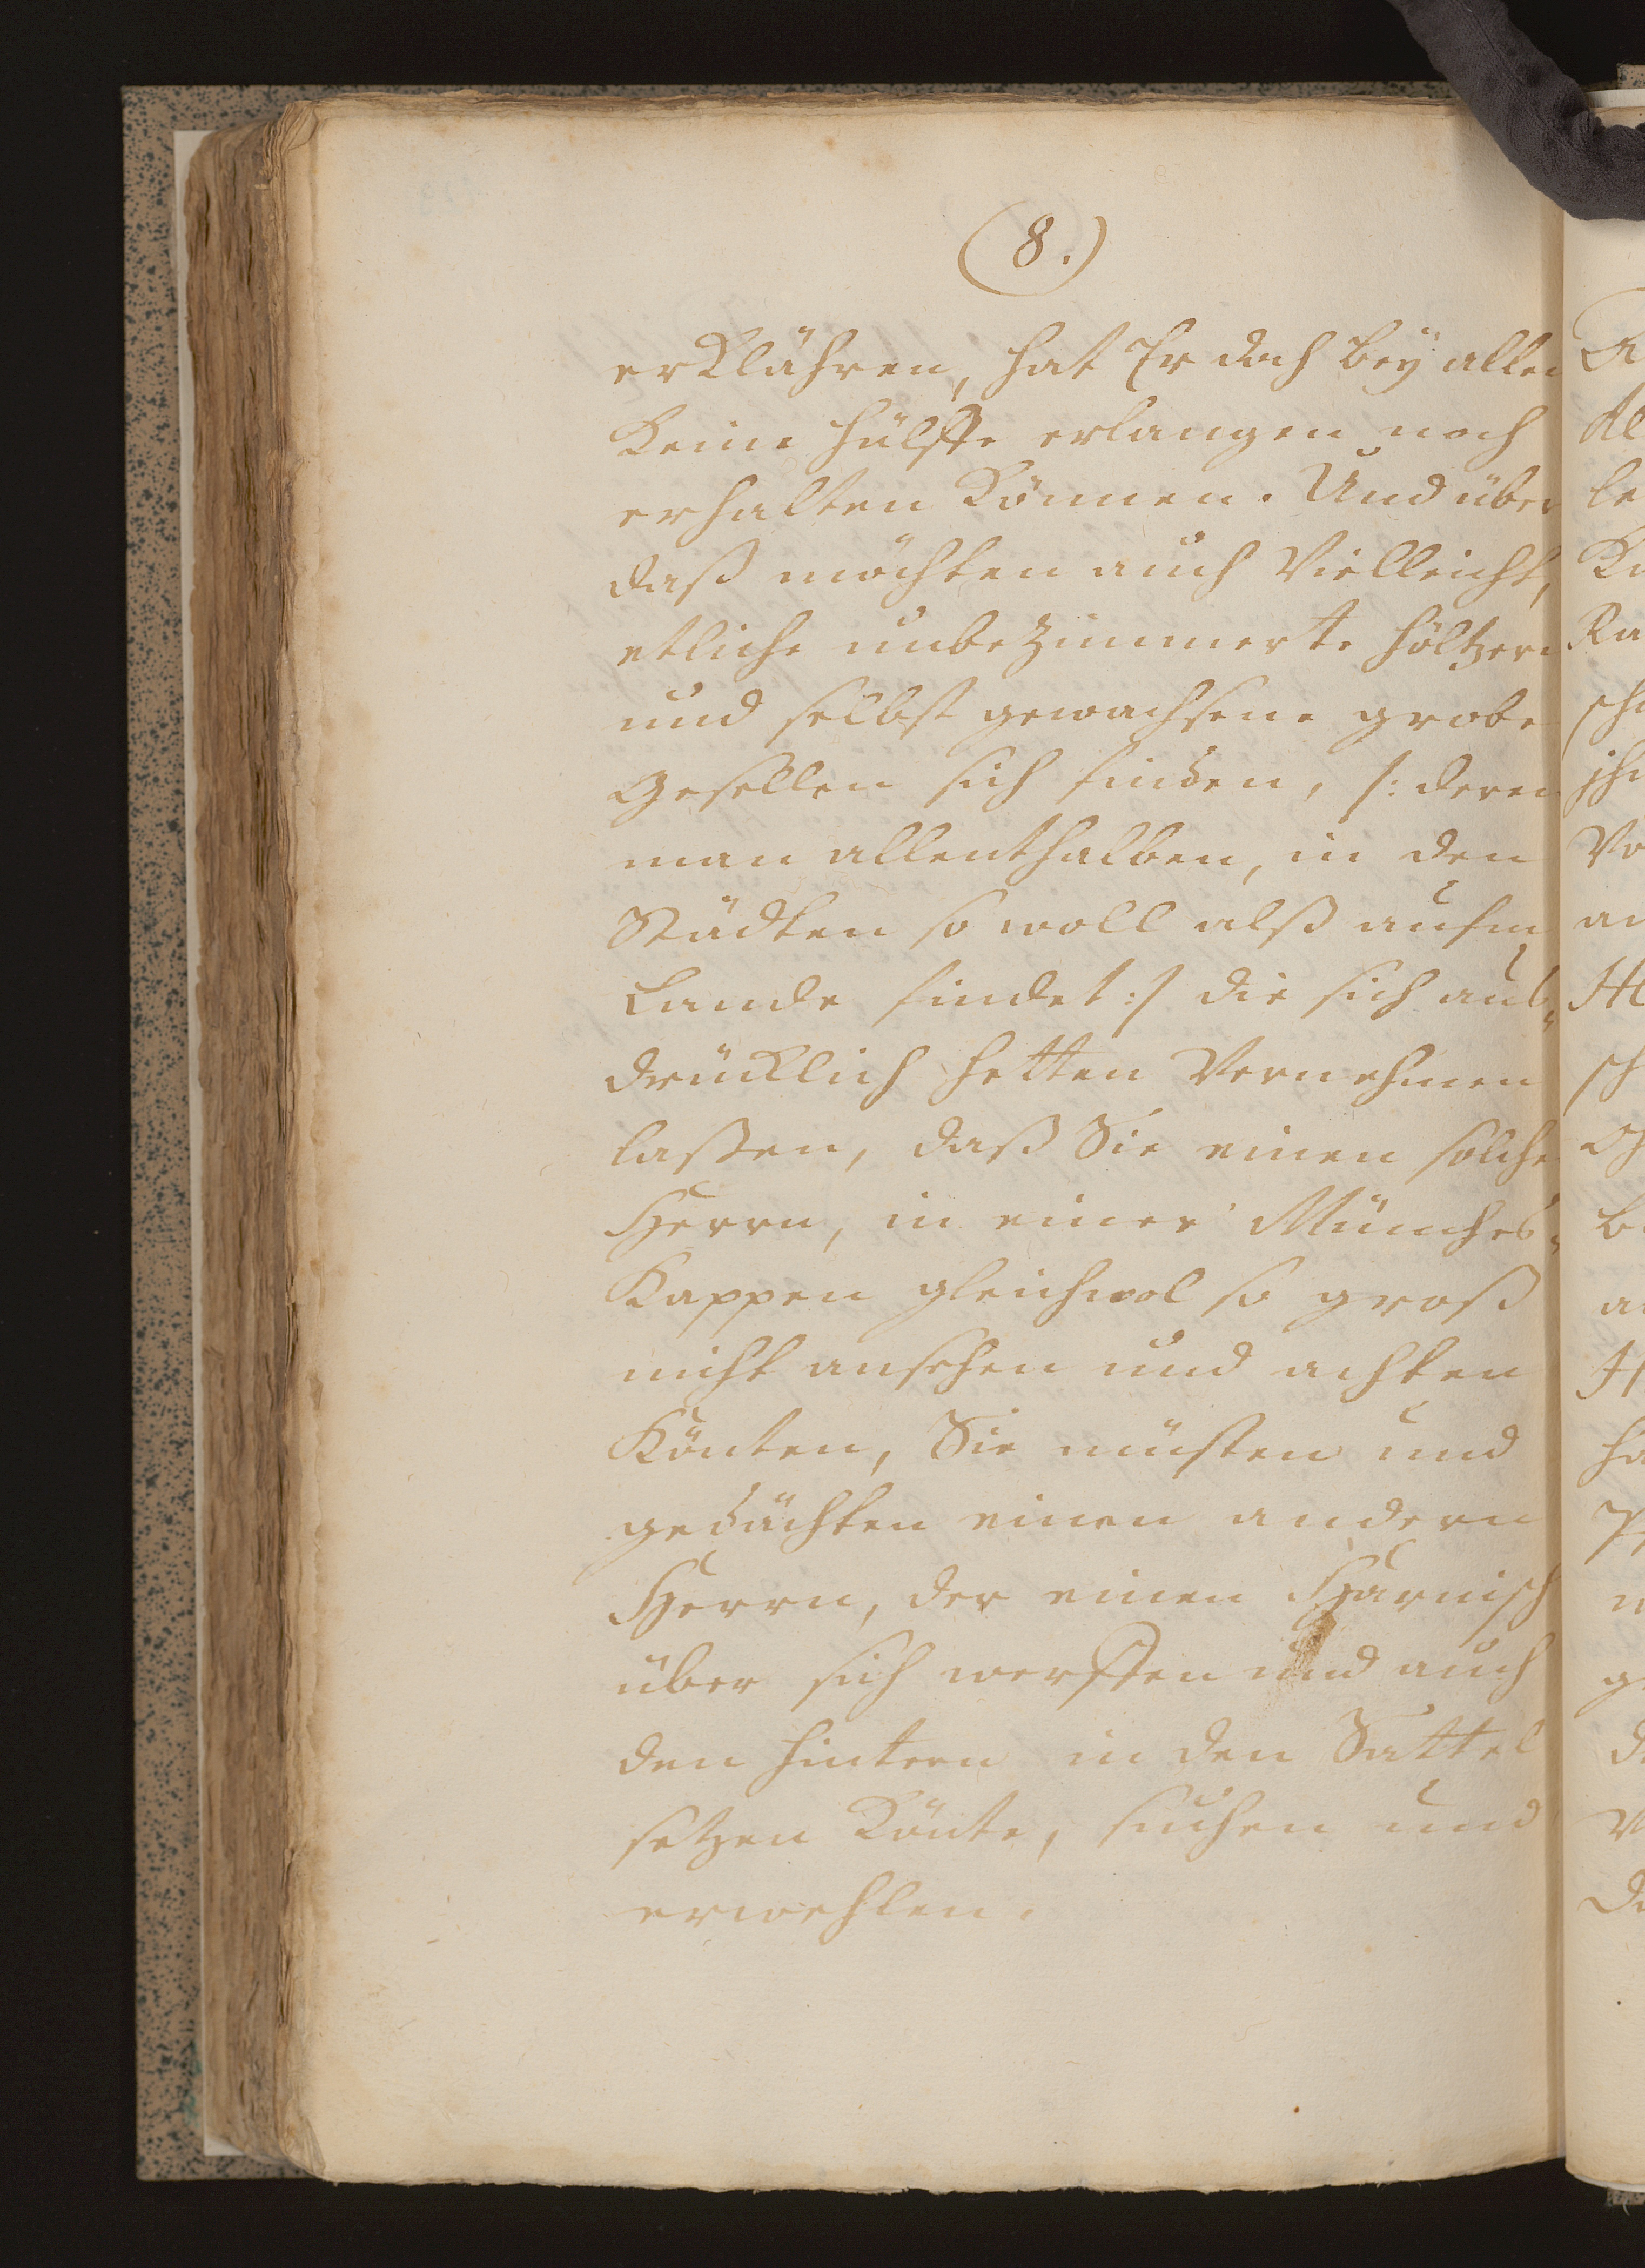 (8.)
erklähren, hat Er doch bey allen
keine hülffe erlangen noch
erhalten können. Und über
daß möchten auch Vielleicht,
etliche unbezimmerte höltzern
und selbst gewachsene grobe
Gesellen sich finden, /: deren
man allenthalben, in den
Städten so woll alß aufm
Lande findet :/ die sich aus-
drücklich hetten Vernehmen
laßen, daß Sie einen solche
Herrn, in einer Münches-
Kappen gleichwol so groß
nicht ansehen und achten
Könten, Sie müsten und
gedächten einen andern
Herrn, der einen Harnisch
über sich werffen und auch
den hintern in den Sattel
setzen könte, suchen und
erwehlen.